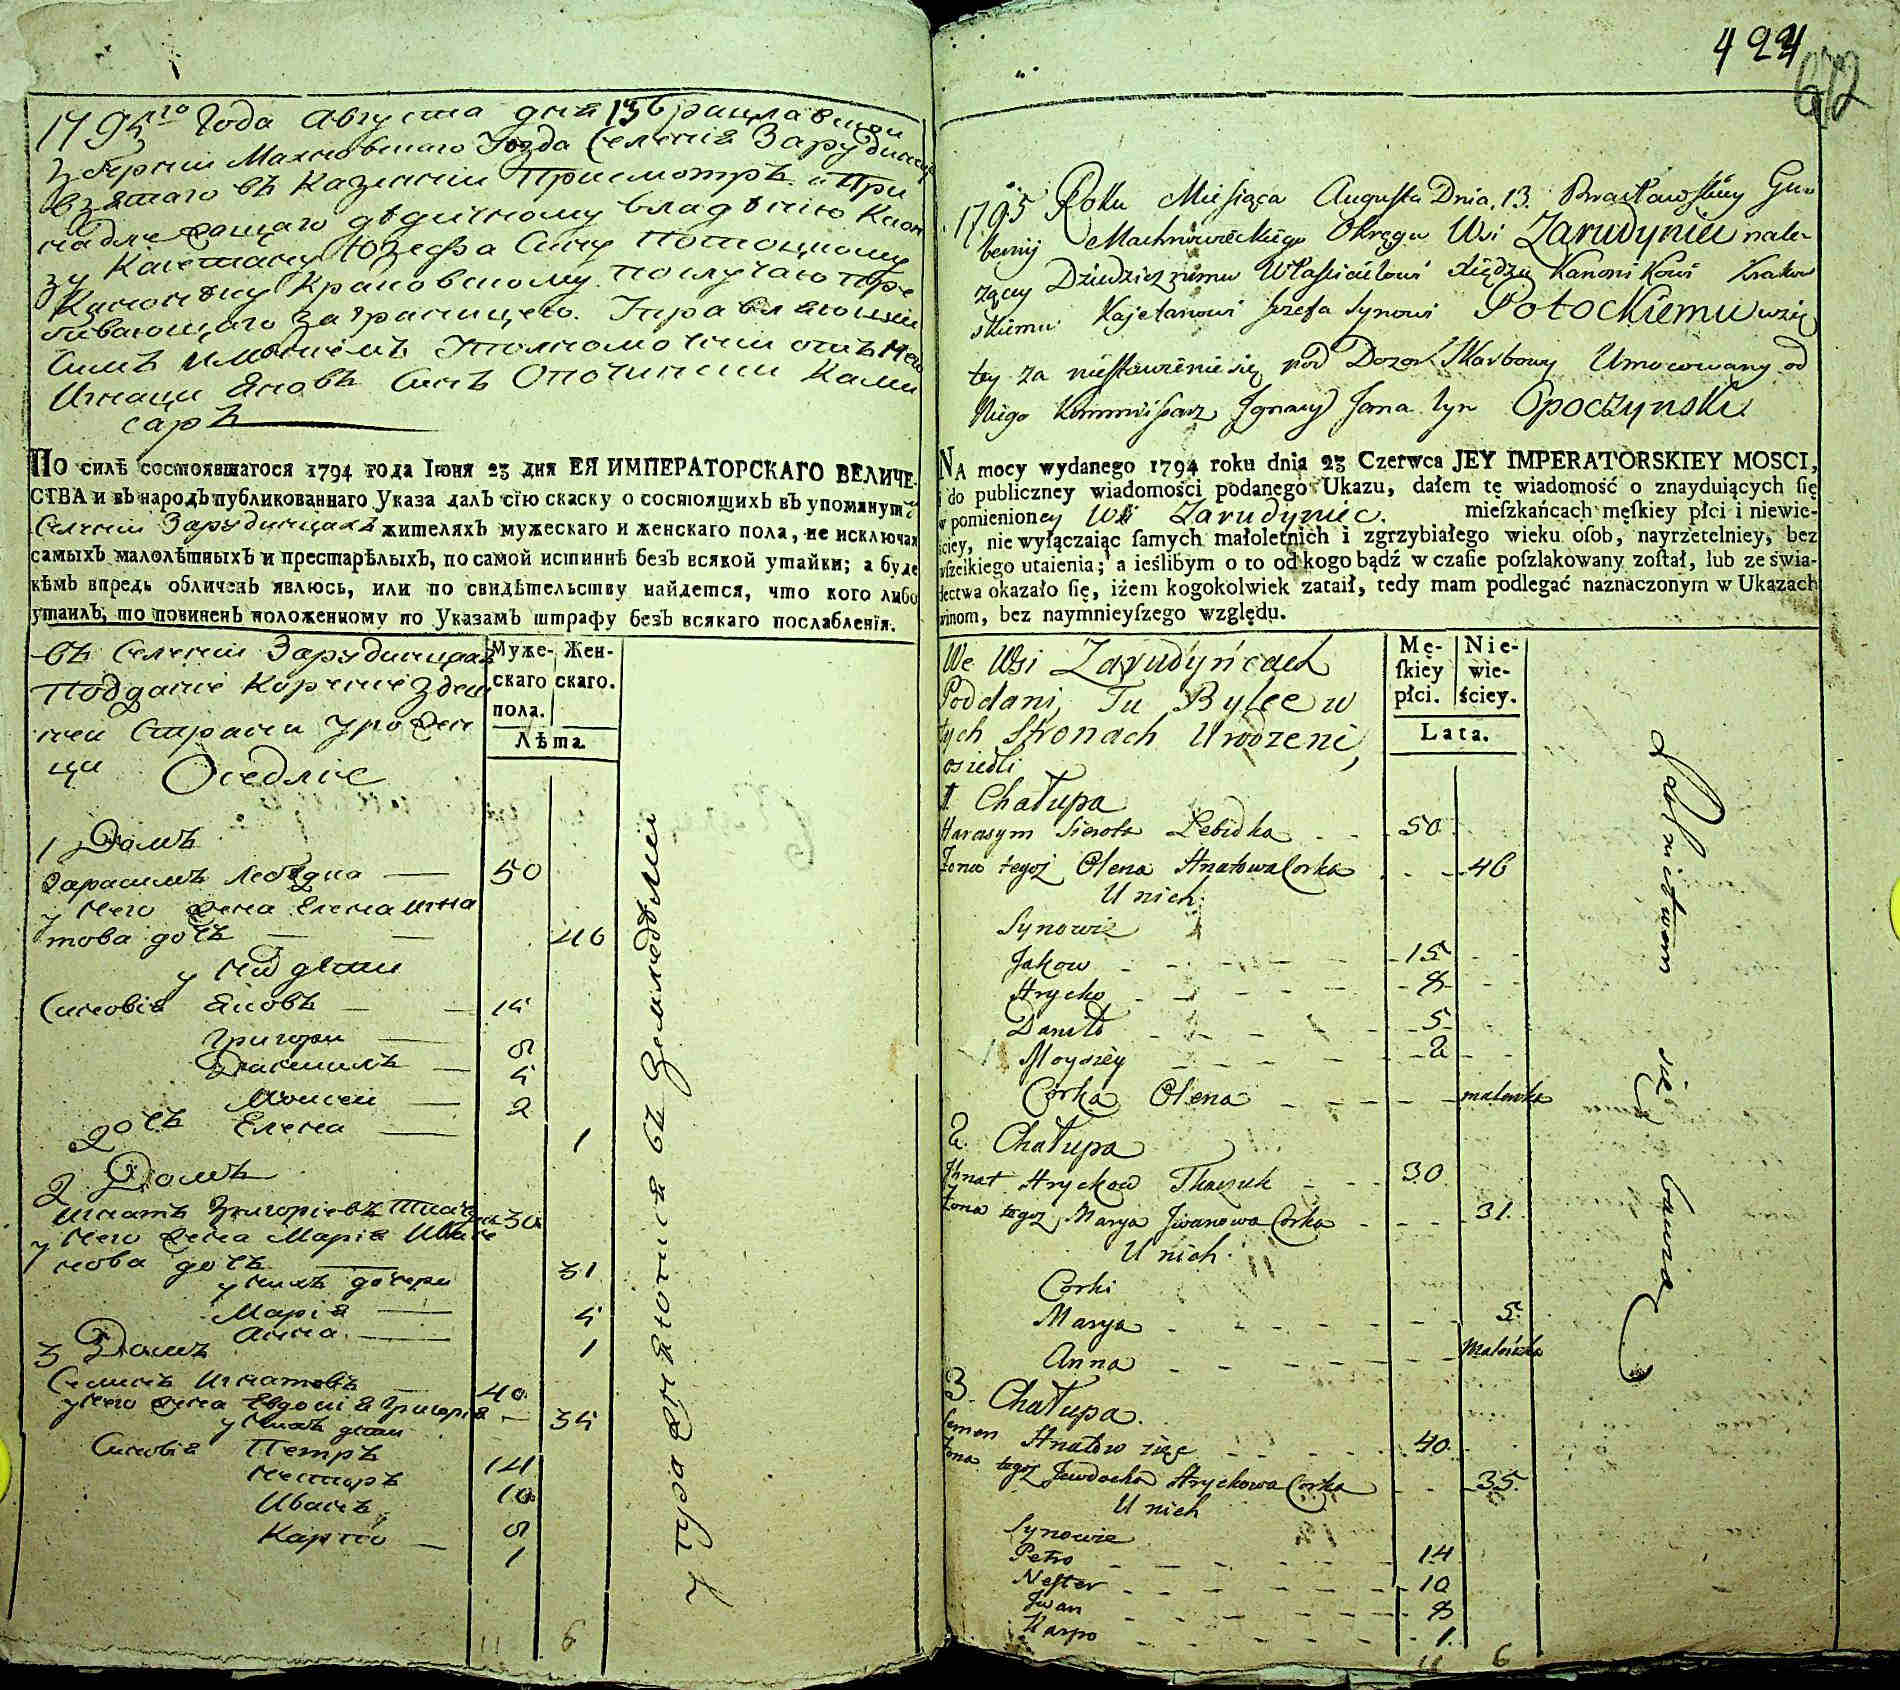 1795го Года Августа дня 13 Брацлавшои
Губерніи Махновшаго Уезда Селенія Зарудинец
взятаго въ Казеннии Присмотръ и При
надлежащаго дѣдичному владѣнію Ксион
зу Каетану Юзефа Сину Потоцкому
Канонѣку Краковскому по случаю пре
бивающаго заграницею. Управляющии
Симъ имѣниемъ Уполномочнии отъ Него
Игнаци Яновъ Синъ Опочински Коми
саръ
По силѣ состоявшагося 1794 года Іюня 23 дня ЕЯ ИМПЕРАТОРСКАГО ВЕЛИЧЕ-
СТВА и въ народъ публикованнаго Указа далъ сію скаску о состоящихъ въ упомянут
Селении Зарудинцахъ жителяхъ мужескаго и женскаго пола, не исключая
самыхъ малолѣтныхъ и престарѣлыхъ, по самой истиннѣ безъ всякой утайки; а буде
кѣмъ впредь обличенъ явлюсь, или по свидѣтельству найдется, что кого либо
утаилъ, то повиненъ положенному по Указамъ штрафу безъ всякаго послабленія.
въ Селении Зарудинцах
Подданіе Корение здеш
неи Страни Урожен
ци Оседлие
Муже-скаго пола. Жен-скаго.
Лѣта
1 Домъ
Гарасимъ Лебѣдка 50
у Него Жена Елена Игна
това дочъ 46
у Них дети
Синовія Яковъ 15
Григори 8
Даниилъ 5
Моисеи 2
Дочъ Елена 1
2 Домъ
Игнатъ Григоріевъ Ткачук 30
у Него Жена Марія Ива
нова дочъ 31
у нихъ дочери
Марія 5
Анна 1
3 Домъ
Семенъ Игнатовъ 40
у Него Жена Евдокия Григорія 35
у Нихъ дети
Синовія Петръ 14
Нестеръ 10
Иванъ 8
Карпо 1
11 6
Упражняются въ Земледѣлии
424
672
1795 Roku Miesiąca Augusta Dnia 13. Bracławskiey Gu
bernij Machnowieckiego Okręgu Wsi Zarudyniec nale
żącey Dziedzicznemu Właścicielowi Xiędzu Kanonikowi Krakow
skiemu Kajetanowi Jozefa Synowi Potockiemu wzię
tey za niestawienie się pod Dozor Skarbowy Umocowany od
Niego Kommissarz Ignacy Jana Syn Opoczynski
NA mocy wydanego 1794 roku dnia 23 Czerwca JEY IMPERATORSKIEY MOSCI,
i do publiczney wiadomości podanego Ukazu, dałem tę wiadomość o znayduiących ſię
w pomienioney Wsi Zarudyniec. mieſzkańcach męſkiey płci i niewie-
ściey, nie wyłączaiąc ſamych małoletnich i zgrzybiałego wieku oſob, nayrzetelniey, bez
wſzelkiego utaienia; a ieślibym o to od kogo bądź w czaſie poſzlakowany zoſtał, lub ze świa-
dectwa okazało ſię, iżem kogokolwiek zataił, tedy mam podlegać naznaczonym w Ukazach
winom, bez naymnieyſzego względu.
We Wsi Zarudyńcach
Poddani, Tu Bylce w
tych Stronach Urodzeni,
osiedli
Mę-ſkiey płci. Nie-wie-ściey.
Lata.
1 Chałupa
Harasym Sierota Lebidka 50
Żona tegoż Olena Hnatowa Corka 46
U nich
Synowie
Jakow 15
Hrycko 8
Daniło 5
Moysiey 2
Corka Olena malenka
2. Chałupa
Ihnat Hryckow Tkaczuk 30
Żona tegoż Marya Iwanowa Corka 31.
U nich.
Corki
Marya 5
Anna Maleńka
3. Chałupa.
Semen Hnatow 40
Żona tegoż Jewdocha Hryckowa Corka 35.
U nich
Synowie
Petro 14
Nester 10
Iwan 8
Karpo 1.
11 6
Rolnictwem się bawią